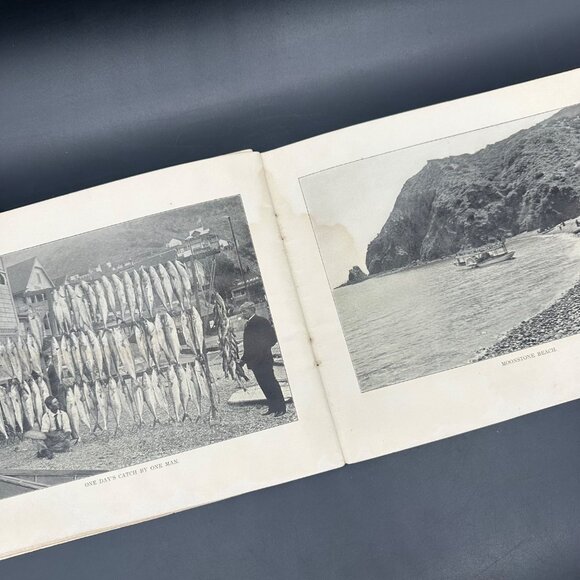 ONE DAY'S CATCH BY ONE MAN.
MOONSTONE BEACH.